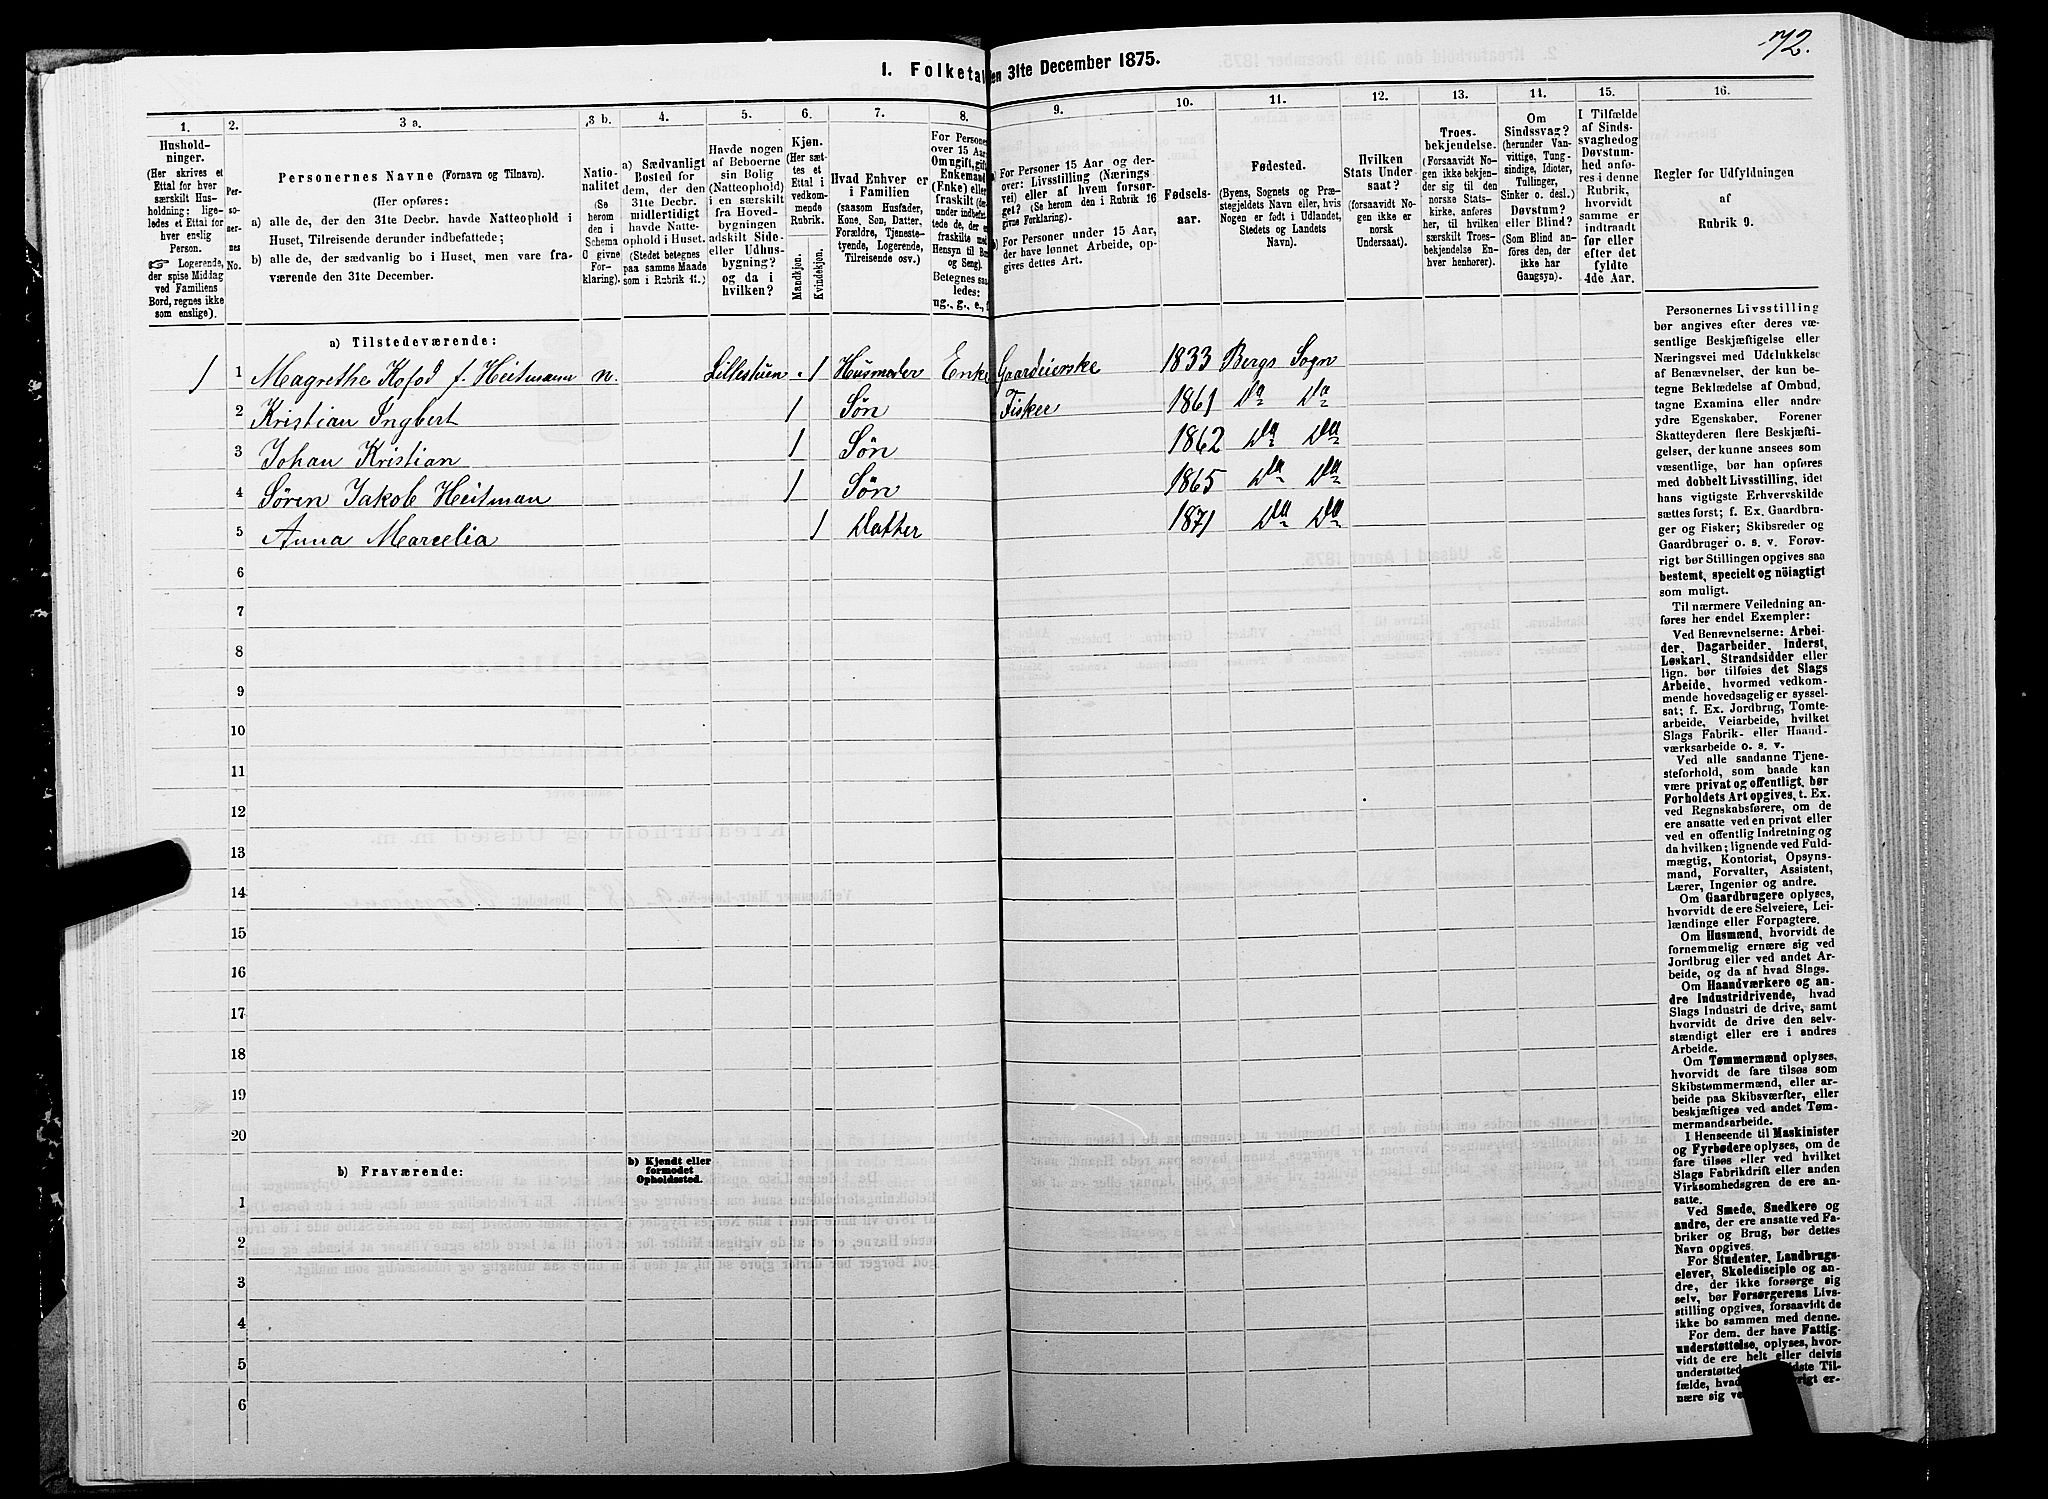 72.
1. Folketal
den 31te December 1875.
1.
Hushold-
ninger.
(Her skrives et
Ettal for hver
særskilt Hus-
holdning; lige-
ledes et Ettal for
hver enslig
Person.
☞ Logerende,
der spise Middag
ved Familiens
Bord, regnes ikke
som enslige).
2.
Per-
so-
ner-
nes
No.
3 a.
Personernes Navne (Fornavn og Tilnavn).
(Her opføres:
a) alle de, der den 31te Decbr. havde Natteophold i
Huset, Tilreisende derunder indbefattede;
b) alle de, der sædvanlig bo i Huset, men vare fra-
værende den 31te December.
3 b.
Natio-
nalitet
(Se
herom
den i
Schema
givne
For-
klaring).
4.
a) Sædvanligt
Bosted for
dem, der den
31te Decbr.
midlertidigt
havde Natte-
ophold i Huset.
(Stedet betegnes
paa samme Maade
som i Rubrik 11.)
5.
Havde nogen
af Beboerne
sin Bolig
(Natteophold)
i en særskilt
fra Hoved-
bygningen
adskilt Side-
eller Udhus-
bygning?
og da i
hvilken?
6.
Kjøn.
(Her sæt-
tes et
Ettal i
vedkom-
mende
Rubrik.
Mandkjøn.
Kvindekjøn.
7.
Hvad Enhver er
i Familien
(saasom Husfader,
Kone, Søn, Datter,
Forældre, Tjeneste-
tyende, Logerende,
Tilreisende osv.).
8.
For Persone
over 15 Aar
Om ugift, gift
Enkemand
(Enke) eller
fraskilt (der-
under indbefat-
tede de, der er
fraskilte med
Hensyn til Bo
og Seng).
Betegnes saa-
ledes:
ug., g., e., f.
9.
a) For Personer 15 Aar og der-
over: Livsstilling (Nærings
vei) eller af hvem forsør-
get? (Se herom den i Rubrik 16
givne Forklaring).
b) For Personer under 15 Aar,
der have lønnet Arbeide, op-
gives dettes Art.
10.
Fødsels-
aar.
11.
Fødested.
(Byens, Sognets og Præ-
stegjeldets Navn eller, hvis
Nogen er født i Udlandet,
Stedets og Landets
Navn).
12.
Hvilken
Stats Under
saat?
(forsaavidt No-
gen ikke er
norsk
Undersaat).
13.
Troes-
bekjendelse.
(Forsaavidt No-
gen ikke bekjen-
der sig til den
norske Stats-
kirke, anføres
her, til hvilken
særskilt Troes-
bekjendelse En-
hver henhører).
14.
Om
Sindssvag?
(herunder Van-
vittige, Tung-
sindige, Idioter,
Tullinger,
Sinker o. desl.).
Døvstum?
eller Blind?
(Som Blind an-
føres den, der
ikke har
Gangsyn).
15.
I Tilfælde
af Sinds-
svaghed og
Døvstum-
hed anfø-
res i denne
Rubrik,
hvorvidt
samme er
indtraadt
før eller
efter det
fyldte
4de Aar.
16.
Regler for Udfyldningen
af
Rubrik 9.
a) Tilstedeværende:
1 1 Magrethe Kofod f. Heitmann n. Lillestuen 1 Husmoder Enke Gaardeierske 1833 Bergs Sogn
2 Kristian Ingbert 1 Søn Fisker 1861 Do Do
3 Johan Kristian 1 Søn 1862 Do Do
4 Søren Jakob Heitman 1 Søn 1865 Do Do
5 Anna Marcelia 1 Datter 1871 Do Do
6
7
8
9
10
11
12
13
14
15
16
17
18
19
20
b) Fraværende:
b) Kjendt eller
formodet
Opholdssted.
1
2
3
4
5
6
Personernes Livsstilling
bør angives efter deres væ-
sentlige Beskjæftigelse eller
Næringsvei med Udelukkelse
af Benævnelser, der kun be-
tegne Beklædelse af Ombud,
tagne Examina eller andre
ydre Egenskaber. Forener
Skatteyderen flere Beskjæfti-
gelser, der kunne ansees som
væsentlige, bør han opføres
med dobbelt Livsstilling, idet
hans vigtigste Erhvervskilde
sættes først; f. Ex. Gaardbru-
ger og Fisker; Skibsreder og
Gaardbruger o. s. v. Forøv-
rigt bør Stillingen opgives saa
bestemt, specielt og nöiagtigt
som muligt.
Til nærmere Veiledning an-
føres her endel Exempler:
Ved Benævnelserne: Arbei-
der, Dagarbeider, Inderst,
Løskarl, Strandsidder eller
lign. bør tilføies det Slags
Arbeide, hvormed vedkom-
mende hovedsagelig er syssel-
sat; f. Ex. Jordbrug, Tomte-
arbeide, Veiarbeide, hvilket
Slags Fabrik- eller Haand-
værksarbeide o. s. v.
Ved alle saadanne Tjene-
steforhold, som baade kan
være privat og offentligt, bør
Forholdets Art opgives, t. Ex.
ved Regnskabsførere, om de
ere ansatte ved en privat eller
ved en offentlig Indretning og
da hvilken; lignende ved Fuld-
mægtig, Kontorist, Opsyns-
mand, Forvalter, Assistent,
Lærer, Ingeniør og andre.
Om Gaardbrugere oplyses,
hvorvidt de ere Selveiere, Lei-
lændinge eller Forpagtere.
Om Husmænd, hvorvidt de
fornemmelig ernære sig ved
Jordbrug eller ved andet Ar-
beide, og da af hvad Slags.
Om Haandværkere og an-
dre Industridrivende, hvad
Slags Industri de drive, samt
hvorvidt de drive den selv-
stændigt eller ere i andres
Arbeide.
Om Tømmermænd oplyses,
hvorvidt de fare tilsøs som
Skibstømmermænd, eller ar-
beide paa Skibsværfter, eller
beskjæftiges ved andet Tøm-
mermandsarbeide.
I Henseende til Maskinister
og Fyrbødere oplyses, om de
fare tilsøs eller ved hvilket
Slags Fabrikdrift eller anden
Virksomhedsgren de ere an-
satte.
Ved Smede, Snedkere og
andre, der ere ansatte ved Fa-
briker og Brug, bør dettes
Navn opgives.
For Studenter, Landbrugs-
elever, Skoledisciple og an-
dre, der ikke forsørge sig
selv, bør Forsørgerens Livs-
stilling opgives, forsaavidt de
ikke bo sammen med denne.
For dem, der have Fattig-
understøttelse, oplyses, hvor-
vidt de ere helt eller delvis
understøttede
fælde, hvad
nære sig